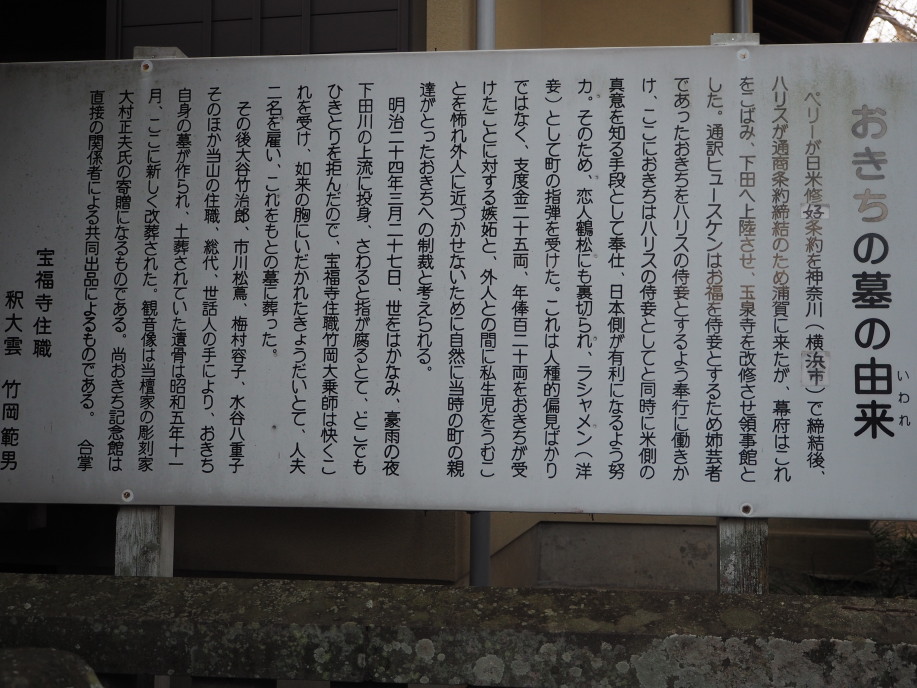 おきちの墓の由来
いわれ
ペリーが日米修好条約を神奈川（横浜市）で締結後、
ハリスが通商条約締結のため浦賀に来たが、幕府はこれ
をこばみ、下田へ上陸させ、玉泉寺を改修させ領事館と
した。通訳ヒュースケンはお福を侍妾とするため姉芸者
であったおきちをハリスの侍妾とするよう奉行に働きか
け、ここにおきちはハリスの侍妾としてと同時に米側の
真意を知る手段として奉仕、日本側が有利になるよう努
力。そのため、恋人鶴松にも裏切られ、ラシャメン（洋
妾）として町の指弾を受けた。これは人種的偏見ばかり
ではなく、支度金二十五両、年俸百二十両をおきちが受
けたことに対する嫉妬と、外人との間に私生児をうむこ
とを怖れ外人に近づかせないために自然に当時の町の親
達がとったおきちへの制裁と考えられる。
明治二十四年三月二十七日、世をはかなみ、豪雨の夜
下田川の上流に投身、さわると指が腐るとて、どこでも
ひきとりを拒んだので、宝福寺住職竹岡大乗師は快くこ
れを受け、如来の胸にいだかれたきょうだいとて、人夫
二名を雇い、これをもとの墓に葬った。
その後大谷竹治郎、市川松蔦、梅村容子、水谷八重子
そのほか当山の住職、総代、世話人の手により、おきち
自身の墓が作られ、土葬されていた遺骨は昭和五年十一
月、ここに新しく改葬された。観音像は当檀家の彫刻家
大村正夫氏の寄贈になるものである。尚おきち記念館は
直接の関係者による共同出品によるものである。　合掌
宝福寺住職
釈大雲　竹岡範男